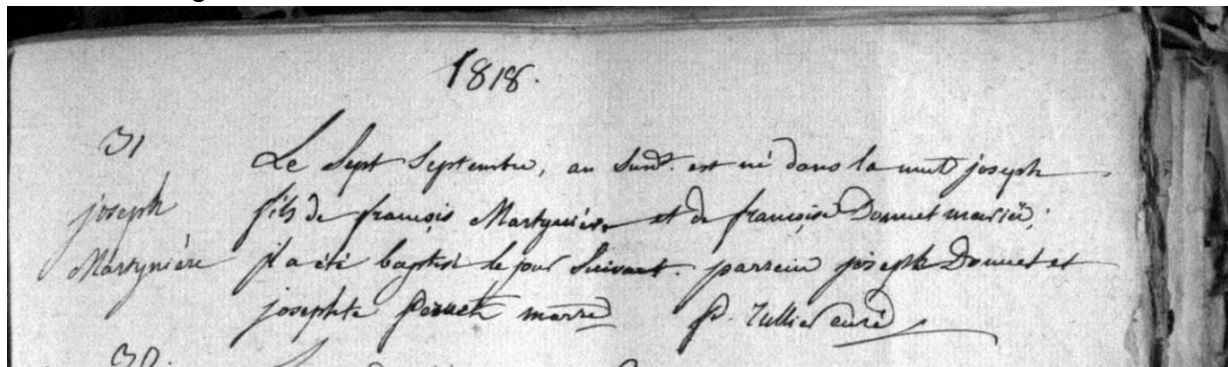 1818.
31
joseph
Martynière
Le Sept Septembre, au Susdt. est né dans la nuit joseph
fils de françois Martynière et de françoise Donnet mariés;
il a été baptisé le jour Suivant. parrein joseph Donnet et
josephte marre P. Tullier curé
30.